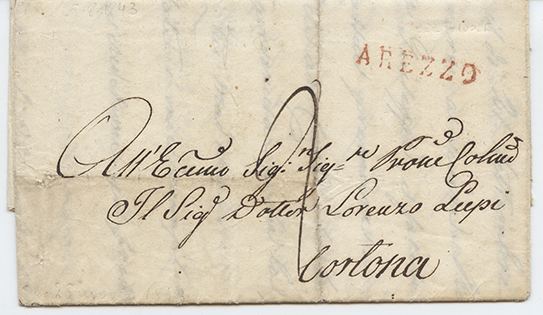 AREZZO
All' Ecc̃mo Sig.r Sig.re Prone Colmo
Il Sig Dottor Lorenzo Lupi
Cortona